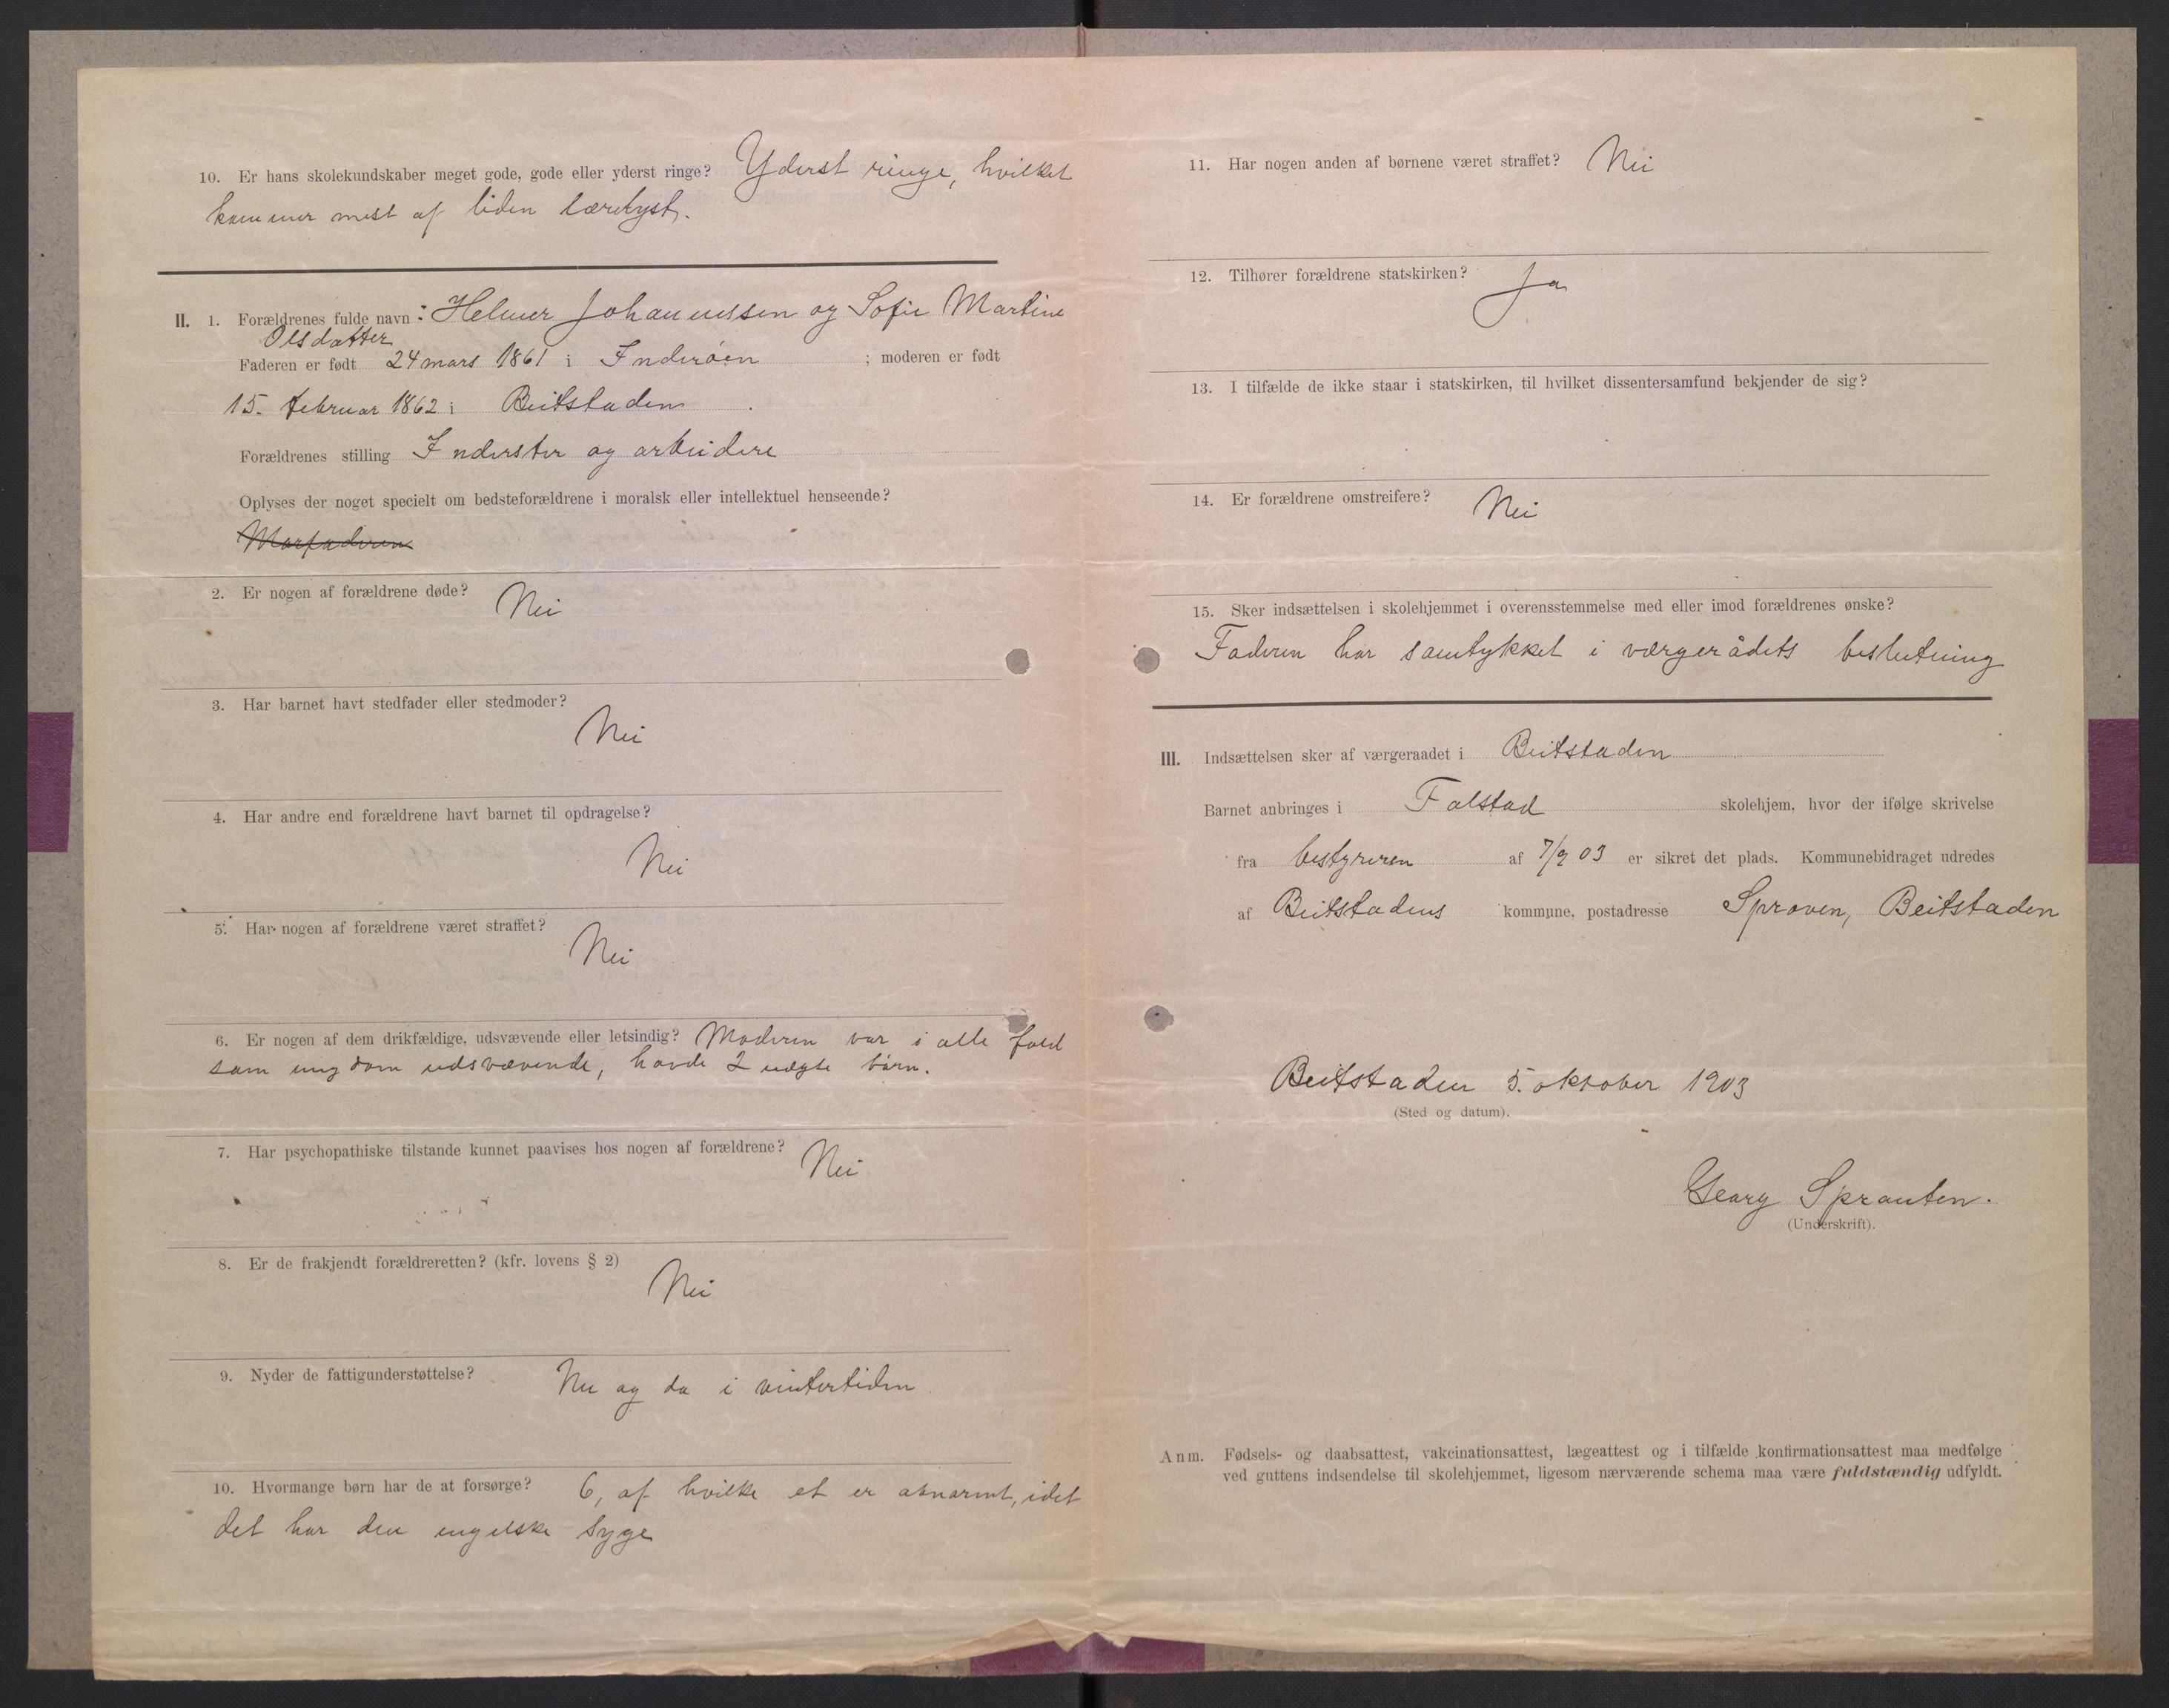 10. Er hans skolekundskaber meget gode, gode eller yderst ringe? Yderst ringe, hvilket
kommer mest af liden lærelyst.
II. 1. Forældrenes fulde navn: Helmer Johannessen og Sofie Martine
Olsdatter
Faderen er født 24 mars 1861 i Inderøen ; moderen er født
15. februar 1862 i Beitstaden .
Forældrenes stilling Inderster og arbeidere
Oplyses der noget specielt om bedsteforældrene i moralsk eller intellektuel henseende?
Morfaderen
2. Er nogen af forældrene døde? Nei
3. Har barnet havt stedfader eller stedmoder?
Nei
4. Har andre end forældrene havt barnet til opdragelse?
Nei
5. Har nogen af forældrene været straffet?
Nei
6. Er nogen af dem drikfældige, udsvævende eller letsindig? Moderen var i alle fald
som ungdom udsvævende, havde 2 uægte børn.
7. Har psychopathiske tilstande kunnet paavises hos nogen af forældrene? Nei
8. Er de frakjendt forældreretten? (kfr. lovens § 2)
Nei
9. Nyder de fattigunderstøttelse? Nu og da i vintertiden
10. Hvormange børn har de at forsørge? 6, af hvilke et er abnormt, idet
det har den engelske syge
11. Har nogen anden af børnene været straffet? Nei
12. Tilhører forældrene statskirken? Ja
13. I tilfælde de ikke staar i statskirken, til hvilket dissentersamfund bekjender de sig?
14. Er forældrene omstreifere? Nei
15. Sker indsættelsen i skolehjemmet i overensstemmelse med eller imod forældrenes ønske?
Faderen har samtykket i værgerådets beslutning
III. Indsættelsen sker af værgeraadet i Beitstaden
Barnet anbringes i Falstad skolehjem, hvor der ifølge skrivelse
fra bestyreren af 7/9 03 er sikret det plads. Kommunebidraget udredes
af Beitstadens kommune, postadresse Sproven, Beitstaden
Beitstaden 5. oktober 1903
(Sted og datum).
Georg Sprauten.
(Underskrift).
Anm. Fødsels- og daabsattest, vakcinationsattest, lægeattest og i tilfælde konfirmationsattest maa medfølge
ved guttens indsendelse til skolehjemmet, ligesom nærværende schema maa være fuldstændig udfyldt.